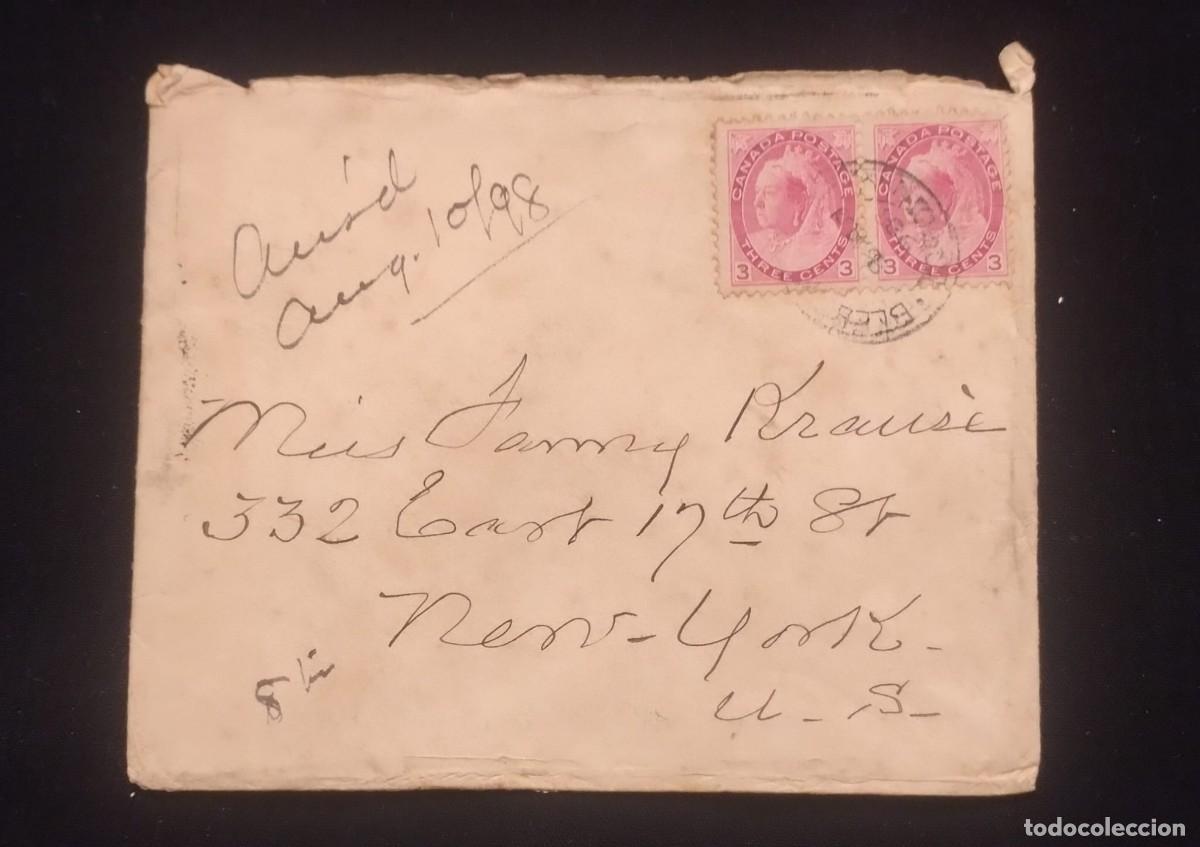 Ans'd
Aug. 10/98
CANADA POSTAGE
THREE CENTS
3 3
CANADA POSTAGE
THREE CENTS
3 3
Miss Fanny Krause
332 East 17th St
New-York-
U-S-
todocoleccion